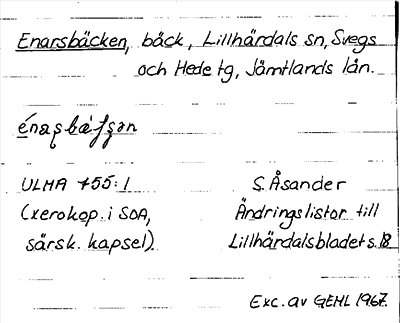 Enarsbäcken, bäck, Lillhärdals sn, Svegs
och Hede tg, Jämtlands län.
ULMA 455:1 S. Åsander
(xerokop. i SOA, Ändringslistor till
särsk. kapsel). Lillhärdalsbladet s. 18
Exc. av GEHL 1967.